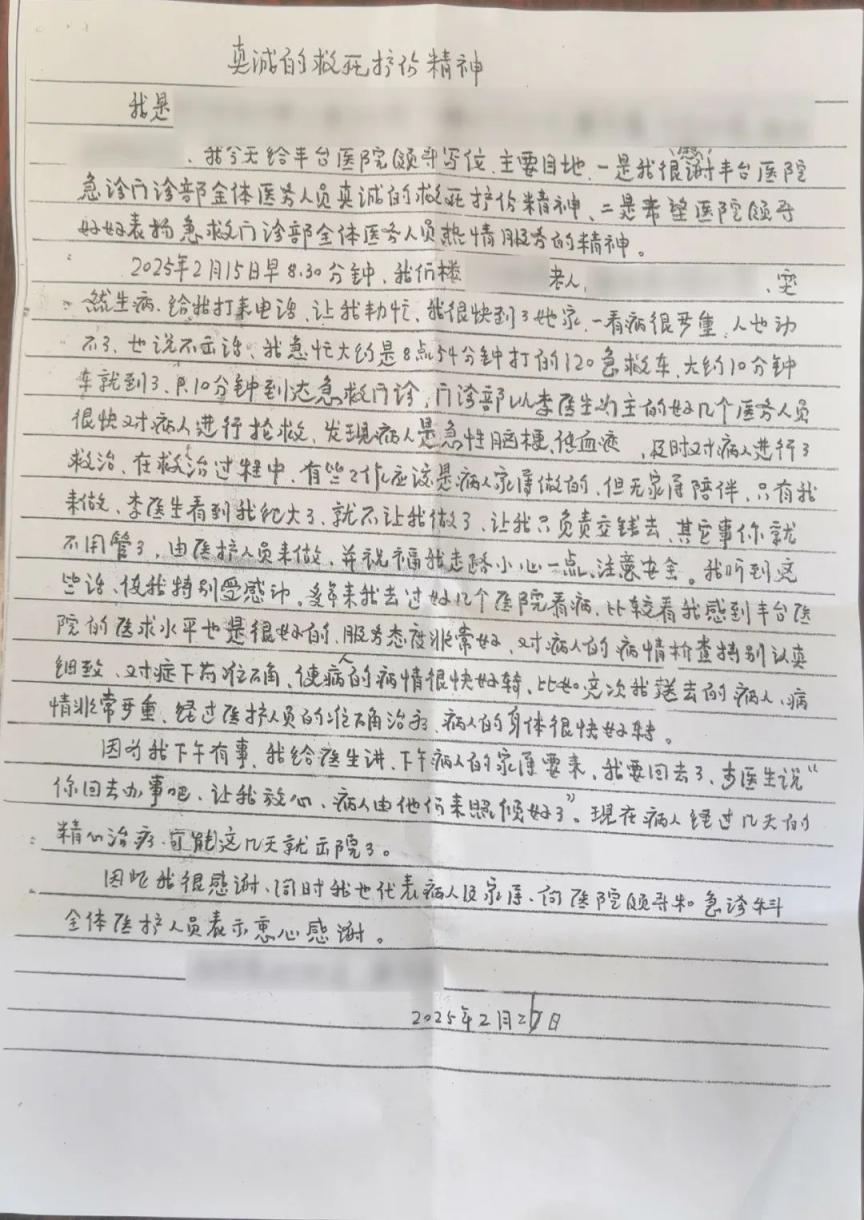 真诚的救死护伤精神
我是
、我今天给丰台医院领导写信、主要目地、一是我很感谢丰台医院
急诊门诊部全体医务人员真诚的救死护伤精神、二是希望医院领导
好好表扬急救门诊部全体医务人员热情服务的精神。
2025年2月15日早8.30分钟、我们楼 老人, 、突
然生病、给我打来电话、让我帮忙、我很快到了她家、一看病很严重、人也动
不了、也说不出话、我急忙大约是8点54分钟打的120急救车、大约10分钟
车就到了、只10分钟到达急救门诊、门诊部以李医生为主的好几个医务人员
很快对病人进行抢救、发现病人是急性脑梗、低血 、及时对病人进行了
救治、在救治过程中、有些工作应该是病人家属做的、但无家属陪伴、只有我
来做、李医生看到我纪大了、就不让我做了、让我只负责交钱去、其它事你就
不用管了、由医护人员来做、并祝福我走路小心一点、注意安全。我听到这
些话、使我特别受感动。多年来我去过好几个医院看病、比较看我感到丰台医
院的医术水平也是很好的、服务态度非常好、对病人的病情检查特别认真
细致、对症下药准确、使病人的病情很快好转、比如这次我送去的病人、病
情非常严重、经过医护人员的准确治疗、病人的身体很快好转。
因为我下午有事、我给医生讲、下午病人的家属要来、我要回去了、李医生说“
你回去办事吧、让我放心、病人由他们来照顾好了”。现在病人经过几天的
精心治疗、可能这几天就出院了。
因此我很感谢、同时我也代表病人及家属、向医院领导和急诊科
全体医护人员表示衷心感谢。
2025年2月 日